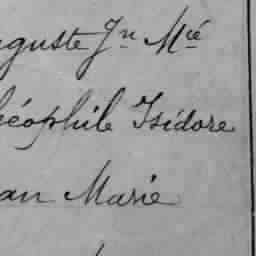 uguste Jn Mié
héophile Isidore
an Marie